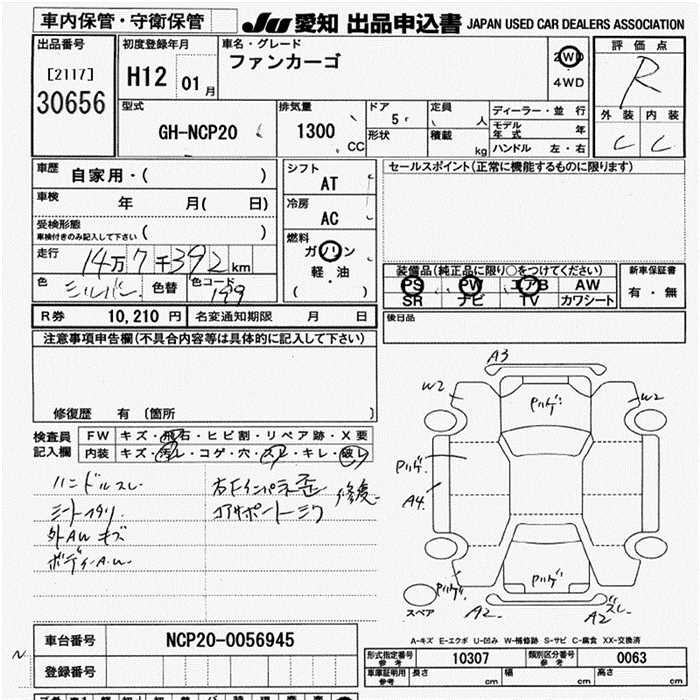 車内保管・守衛保管 JU 愛知 出品申込書 JAPAN USED CAR DEALERS ASSOCIATION
出品番号 初度登録年月 車名・グレード 評価点
[2117] H12 01月 ファンカーゴ 2WD R
30656 4WD
型式 排気量 ドア 定員 ディーラー・並行 外装 内装
GH-NCP20 1300 CC 5 人 モデル年式 年 C C
形状 積載 kg ハンドル 左・右
車歴 自家用・( ) シフト AT セールスポイント(正常に機能するものに限ります)
車検 年 月( 日) 冷房 AC
受検形態
車検付きのみ記入して下さい ( )
燃料 ガソリン
軽・油
( )
走行 14万7千392km
色 シルバー 色替 色コード 199
装備品(純正品に限り○をつけてください) 新車保証書
PS PW エアB AW 有・無
SR ナビ TV カワシート
R券 10,210 円 名変通知期限 月 日 後日品
注意事項申告欄(不具合内容等は具体的に記入して下さい)
修復歴 有 〔箇所 〕
検査員 FW キズ・飛石・ヒビ割・リペア跡・X要
記入欄 内装 キズ・汚レ・コゲ・穴・スレ・キレ・破レ
ハンドルスレ 右Fインパネ歪 修復
シートヘタリ コアサポートミク
外AWキズ
ボディA.W
A3
W2 Pハゲ W2
Pハゲ
A4
Pハゲ Pハゲ
スペア A2 A2 スレ
A-キズ E-エクボ U-凹み W-補修跡 S-サビ C-腐食 XX-交換済
車台番号 NCP20-0056945
登録番号
形式指定番号 参考 10307 類別区分番号 参考 0063
車庫証明用 参考 長さ cm 幅 cm 高さ cm